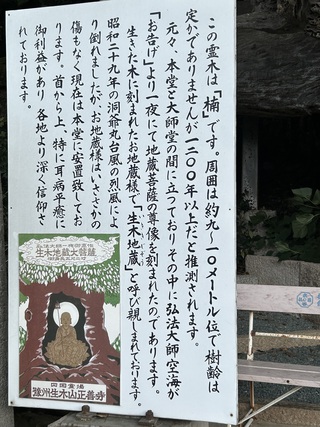 この霊木は「楠」です。周囲は約九〜一〇メートル位で樹齢は
定かでありませんが一二〇〇年以上だと推測されます。
元々、本堂と大師堂の間に立っており その中に弘法大師空海が
「お告げ」より一夜にて地蔵菩薩の尊像を刻まれたのであります。
生きた木に刻まれたお地蔵様で「生木地蔵」と呼び親しまれております。
昭和二十九年の洞爺丸台風の烈風によ
り倒れましたが、お地蔵様は、いささかの
傷もなく現在は本堂に安置致してお
ります。首から上、特に耳病平癒に
御利益があり各地より深く信仰さ
れております。
生木地蔵大菩薩
四国霊場
豫州生木山正善寺